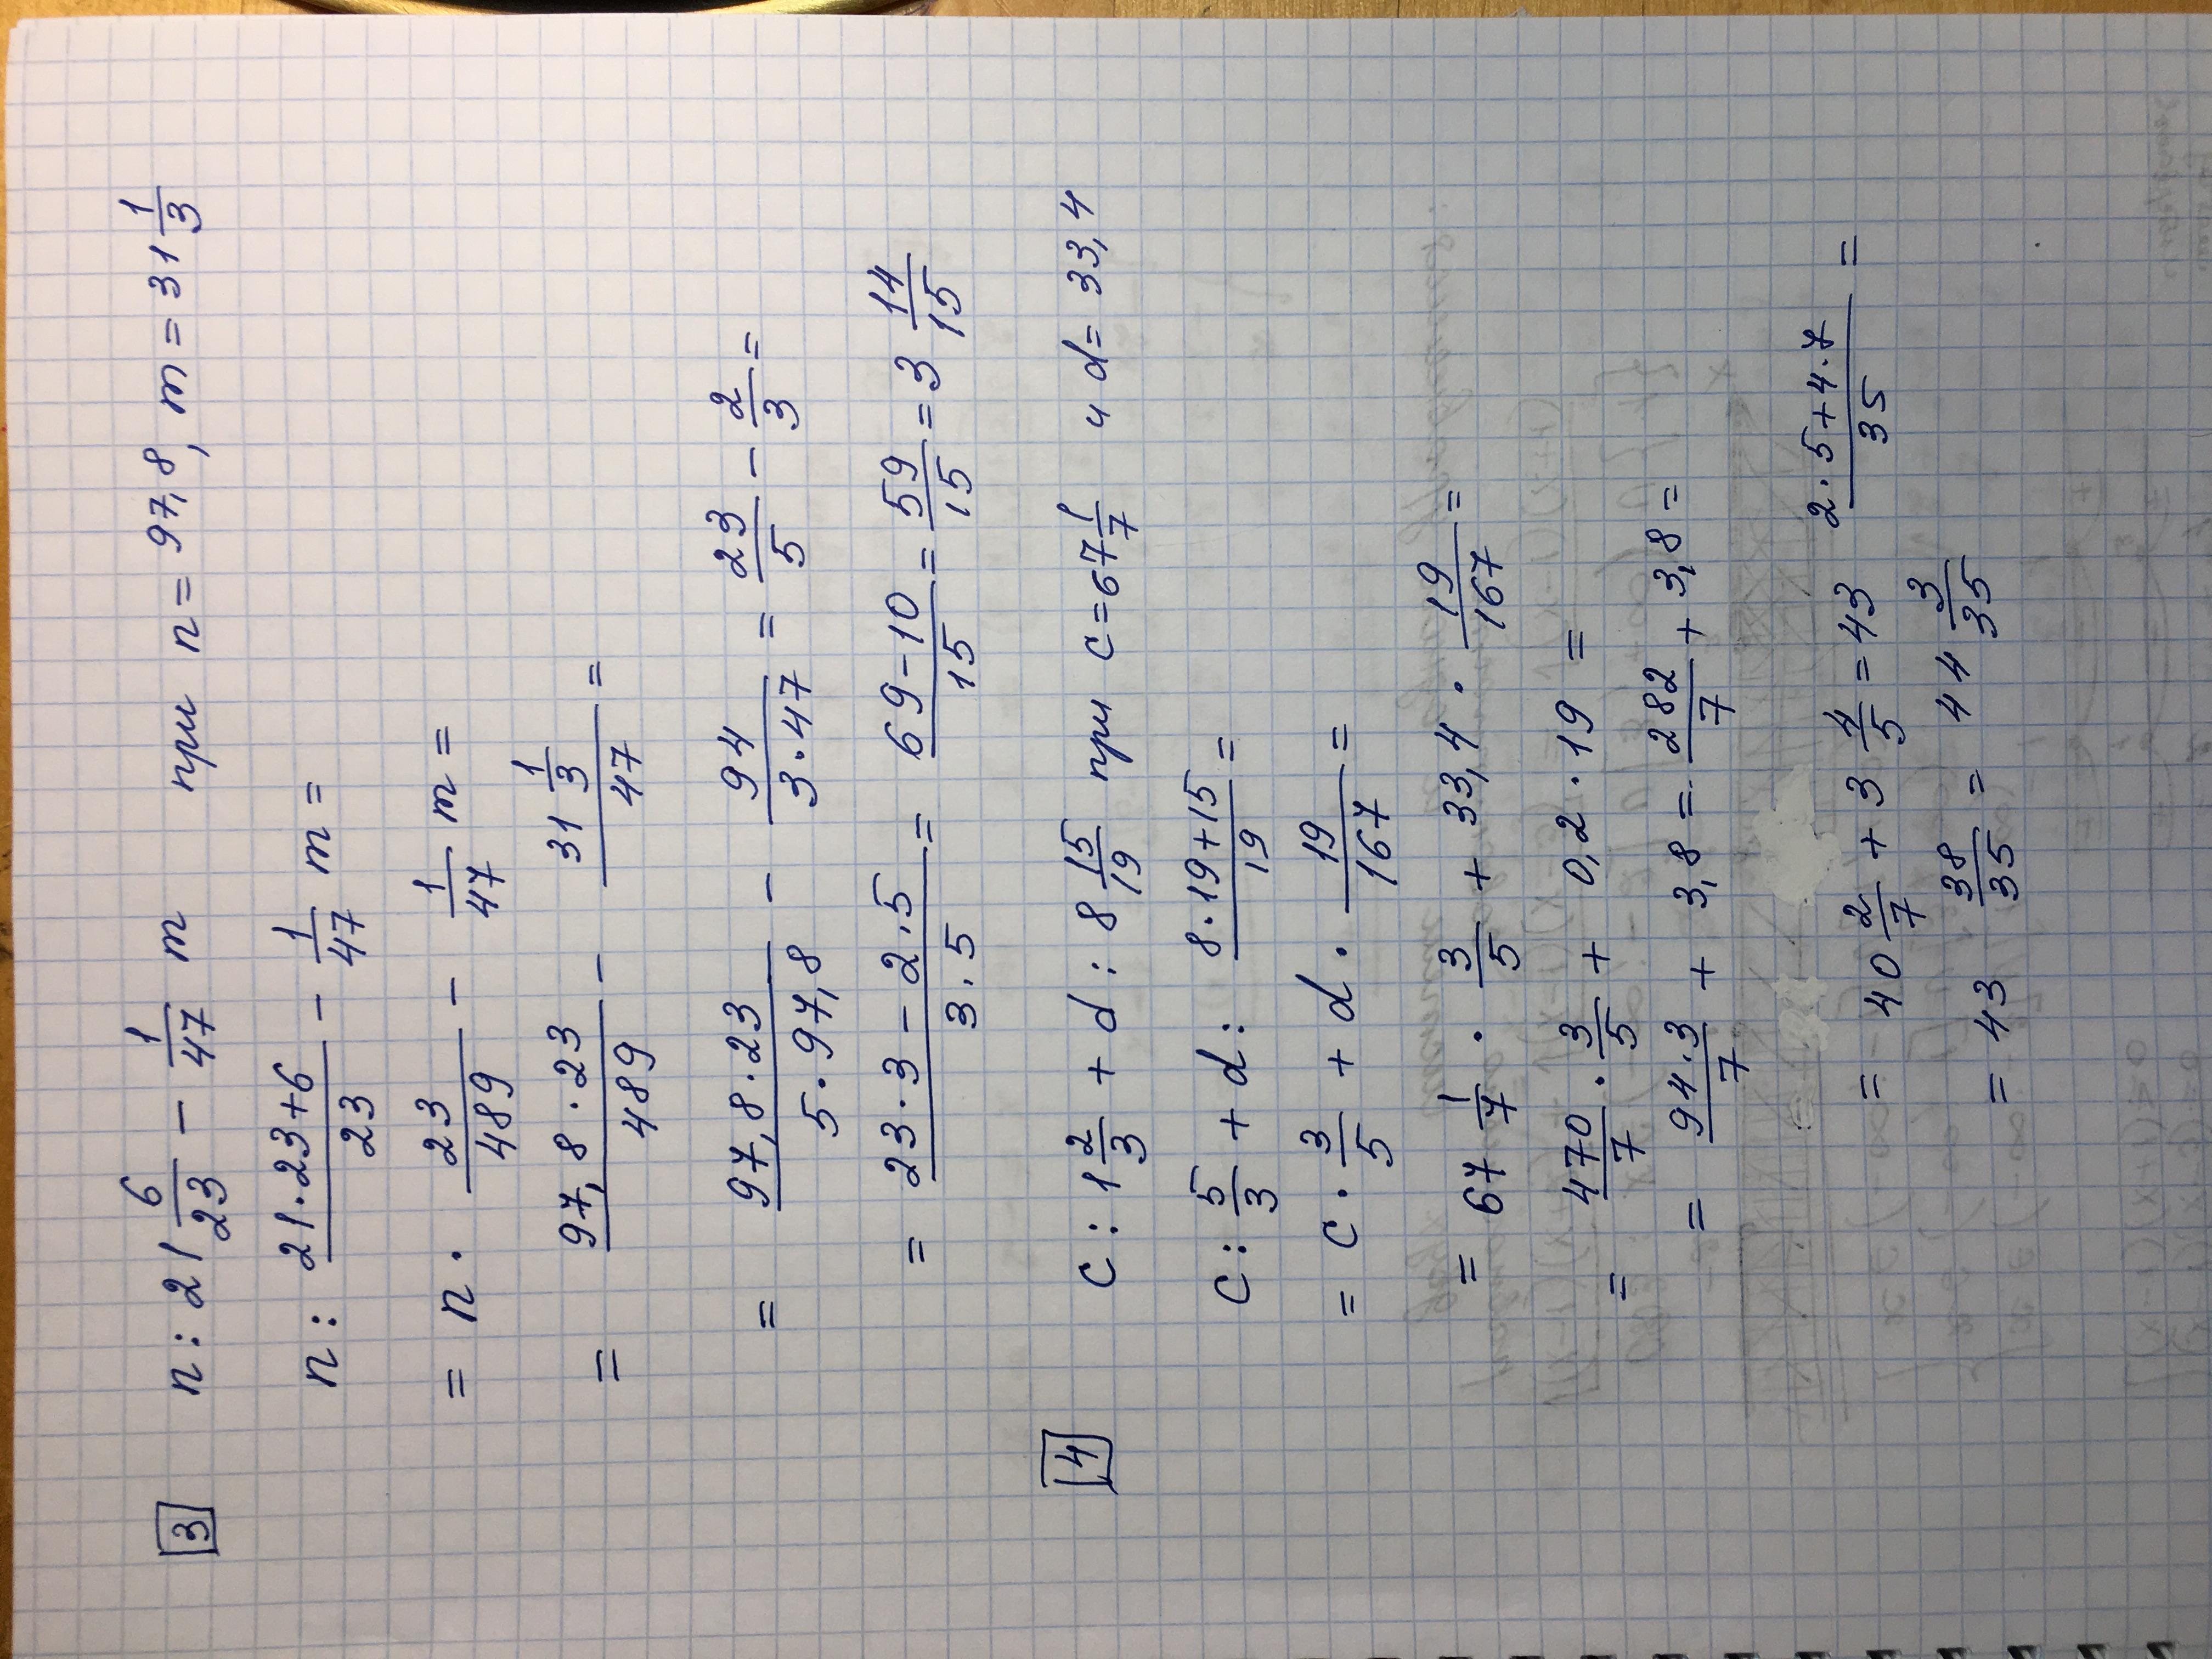 3 n : 21 6/23 - 1/47 m при n = 97,8, m = 31 1/3
n : (21·23+6)/23 - 1/47 m =
= n · 23/489 - 1/47 m =
= (97,8·23)/489 - (31 1/3)/47 =
= (97,8·23)/(5·97,8) - 94/(3·47) = 23/5 - 2/3 =
= (23·3 - 2·5)/(3·5) = (69-10)/15 = 59/15 = 3 14/15
4 c : 1 2/3 + d : 8 15/19 при c = 67 1/7 и d = 33,4
c : 5/3 + d : (8·19+15)/19 =
= c · 3/5 + d · 19/167 =
= 67 1/7 · 3/5 + 33,4 · 19/167 =
= 470/7 · 3/5 + 0,2 · 19 =
= (94·3)/7 + 3,8 = 282/7 + 3,8 =
= 40 2/7 + 3 4/5 = 43 (2·5+4·7)/35 =
= 43 38/35 = 44 3/35